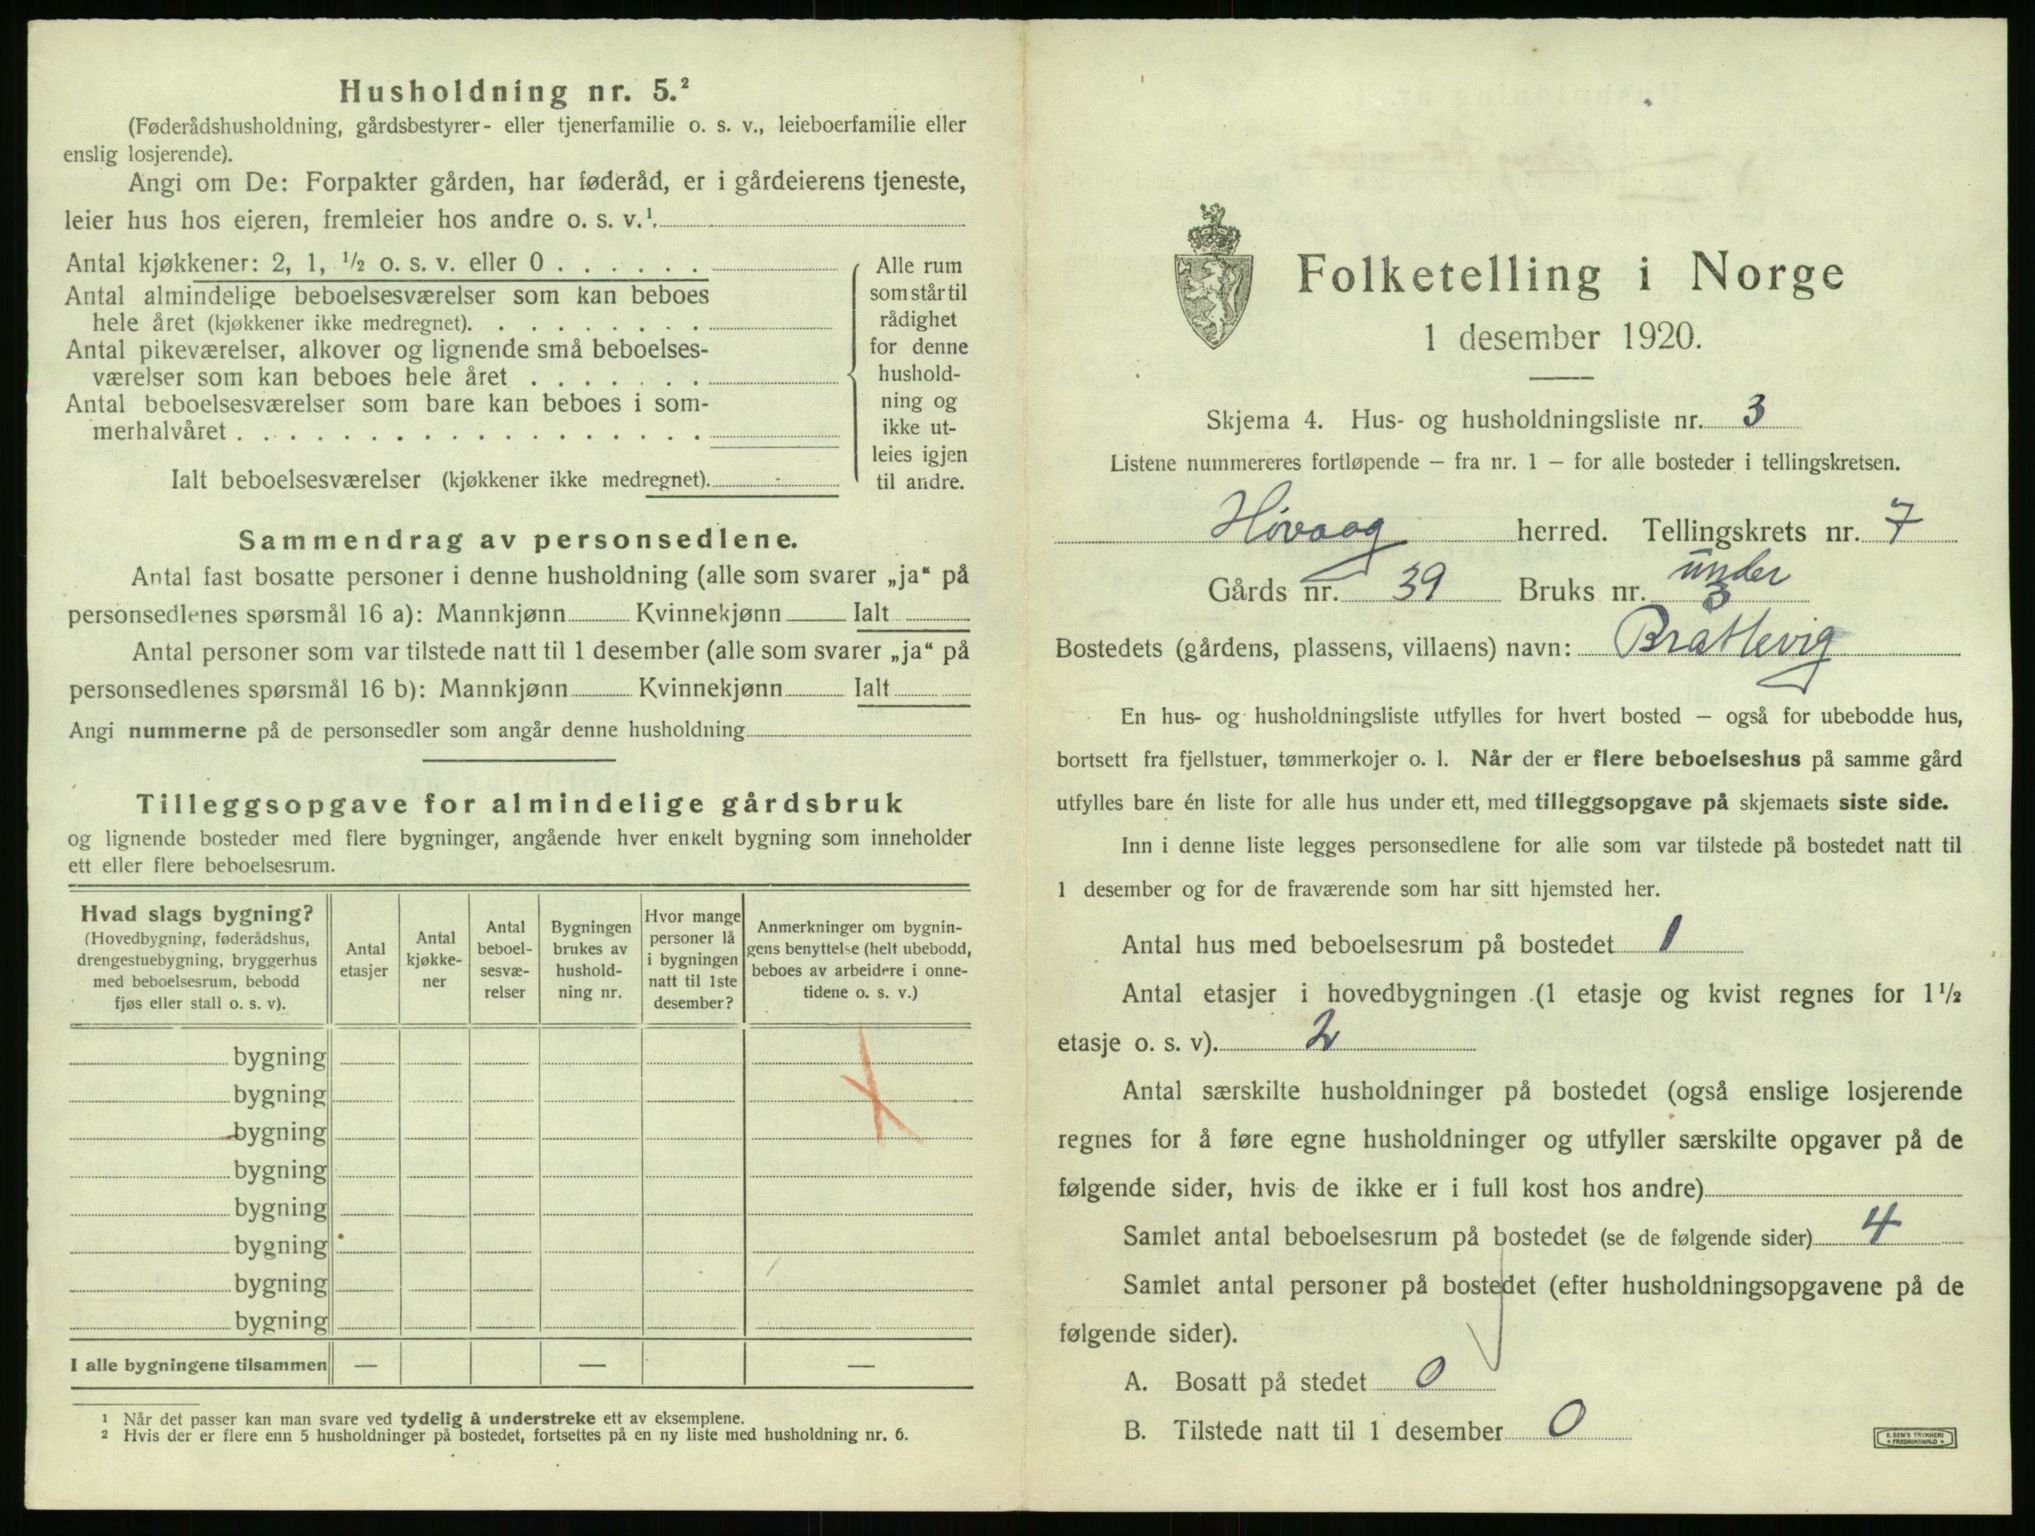 Husholdning nr. 5.²
(Føderådshusholdning, gårdsbestyrer- eller tjenerfamilie o. s. v., leieboerfamilie eller
enslig losjerende).
Angi om De: Forpakter gården, har føderåd, er i gårdeierens tjeneste,
leier hus hos eieren, fremleier hos andre o. s. v.¹.
Antal kjøkkener: 2, 1, ½ o. s. v. eller 0 . . . . . .
Antal almindelige beboelsesværelser som kan beboes
hele året (kjøkkener ikke medregnet). . . . . . . . .
Antal pikeværelser, alkover og lignende små beboelses-
værelser som kan beboes hele året . . . . . . .
Antal beboelsesværelser som bare kan beboes i som-
merhalvåret . . . . . . . . . . . . . . . . . .
Ialt beboelsesværelser (kjøkkener ikke medregnet).
Alle rum
som står til
rådighet
for denne
hushold-
ning og
ikke ut-
leies igjen
til andre.
Sammendrag av personsedlene.
Antal fast bosatte personer i denne husholdning (alle som svarer „ja“ på
personsedlenes spørsmål 16 a): Mannkjønn Kvinnekjønn Ialt
Antal personer som var tilstede natt til 1 desember (alle som svarer „ja“ på
personsedlenes spørsmål 16 b): Mannkjønn Kvinnekjønn Ialt
Angi nummerne på de personsedler som angår denne husholdning
Tilleggsopgave for almindelige gårdsbruk
og lignende bosteder med flere bygninger, angående hver enkelt bygning som inneholder
ett eller flere beboelsesrum.
Hvad slags bygning?
(Hovedbygning, føderådshus,
drengestuebygning, bryggerhus
med beboelsesrum, bebodd
fjøs eller stall o. s. v).
Antal
etasjer
Antal
kjøkke-
ner
Antal
beboel-
sesvæ-
relser
Bygningen
brukes av
hushold-
ning nr.
Hvor mange
personer lå
i bygningen
natt til 1ste
desember?
Anmerkninger om bygnin-
gens benyttelse (helt ubebodd,
beboes av arbeidere i onne-
tidene o. s. v.)
bygning
bygning
bygning
bygning
bygning
bygning
bygning
bygning
I alle bygningene tilsammen — — —
¹ Når det passer kan man svare ved tydelig å understreke ett av eksemplene.
² Hvis der er flere enn 5 husholdninger på bostedet, fortsettes på en ny liste med husholdning nr. 6.
Folketelling i Norge
1 desember 1920.
Skjema 4. Hus- og husholdningsliste nr. 3
Listene nummereres fortløpende – fra nr. 1 – for alle bosteder i tellingskretsen.
Høvaag herred. Tellingskrets nr. 7
under
Gårds nr. 39 Bruks nr. 3
Bostedets (gårdens, plassens, villaens) navn: Brattevig
En hus- og husholdningsliste utfylles for hvert bosted – også for ubebodde hus,
bortsett fra fjellstuer, tømmerkojer o. l. Når der er flere beboelseshus på samme gård
utfylles bare én liste for alle hus under ett, med tilleggsopgave på skjemaets siste side.
Inn i denne liste legges personsedlene for alle som var tilstede på bostedet natt til
1 desember og for de fraværende som har sitt hjemsted her.
Antal hus med beboelsesrum på bostedet 1
Antal etasjer i hovedbygningen (1 etasje og kvist regnes for 1½
etasje o. s. v). 2
Antal særskilte husholdninger på bostedet (også enslige losjerende
regnes for å føre egne husholdninger og utfyller særskilte opgaver på de
følgende sider, hvis de ikke er i full kost hos andre)
Samlet antal beboelsesrum på bostedet (se de følgende sider) 4
Samlet antal personer på bostedet (efter husholdningsopgavene på de
følgende sider).
A. Bosatt på stedet 0
B. Tilstede natt til 1 desember 0